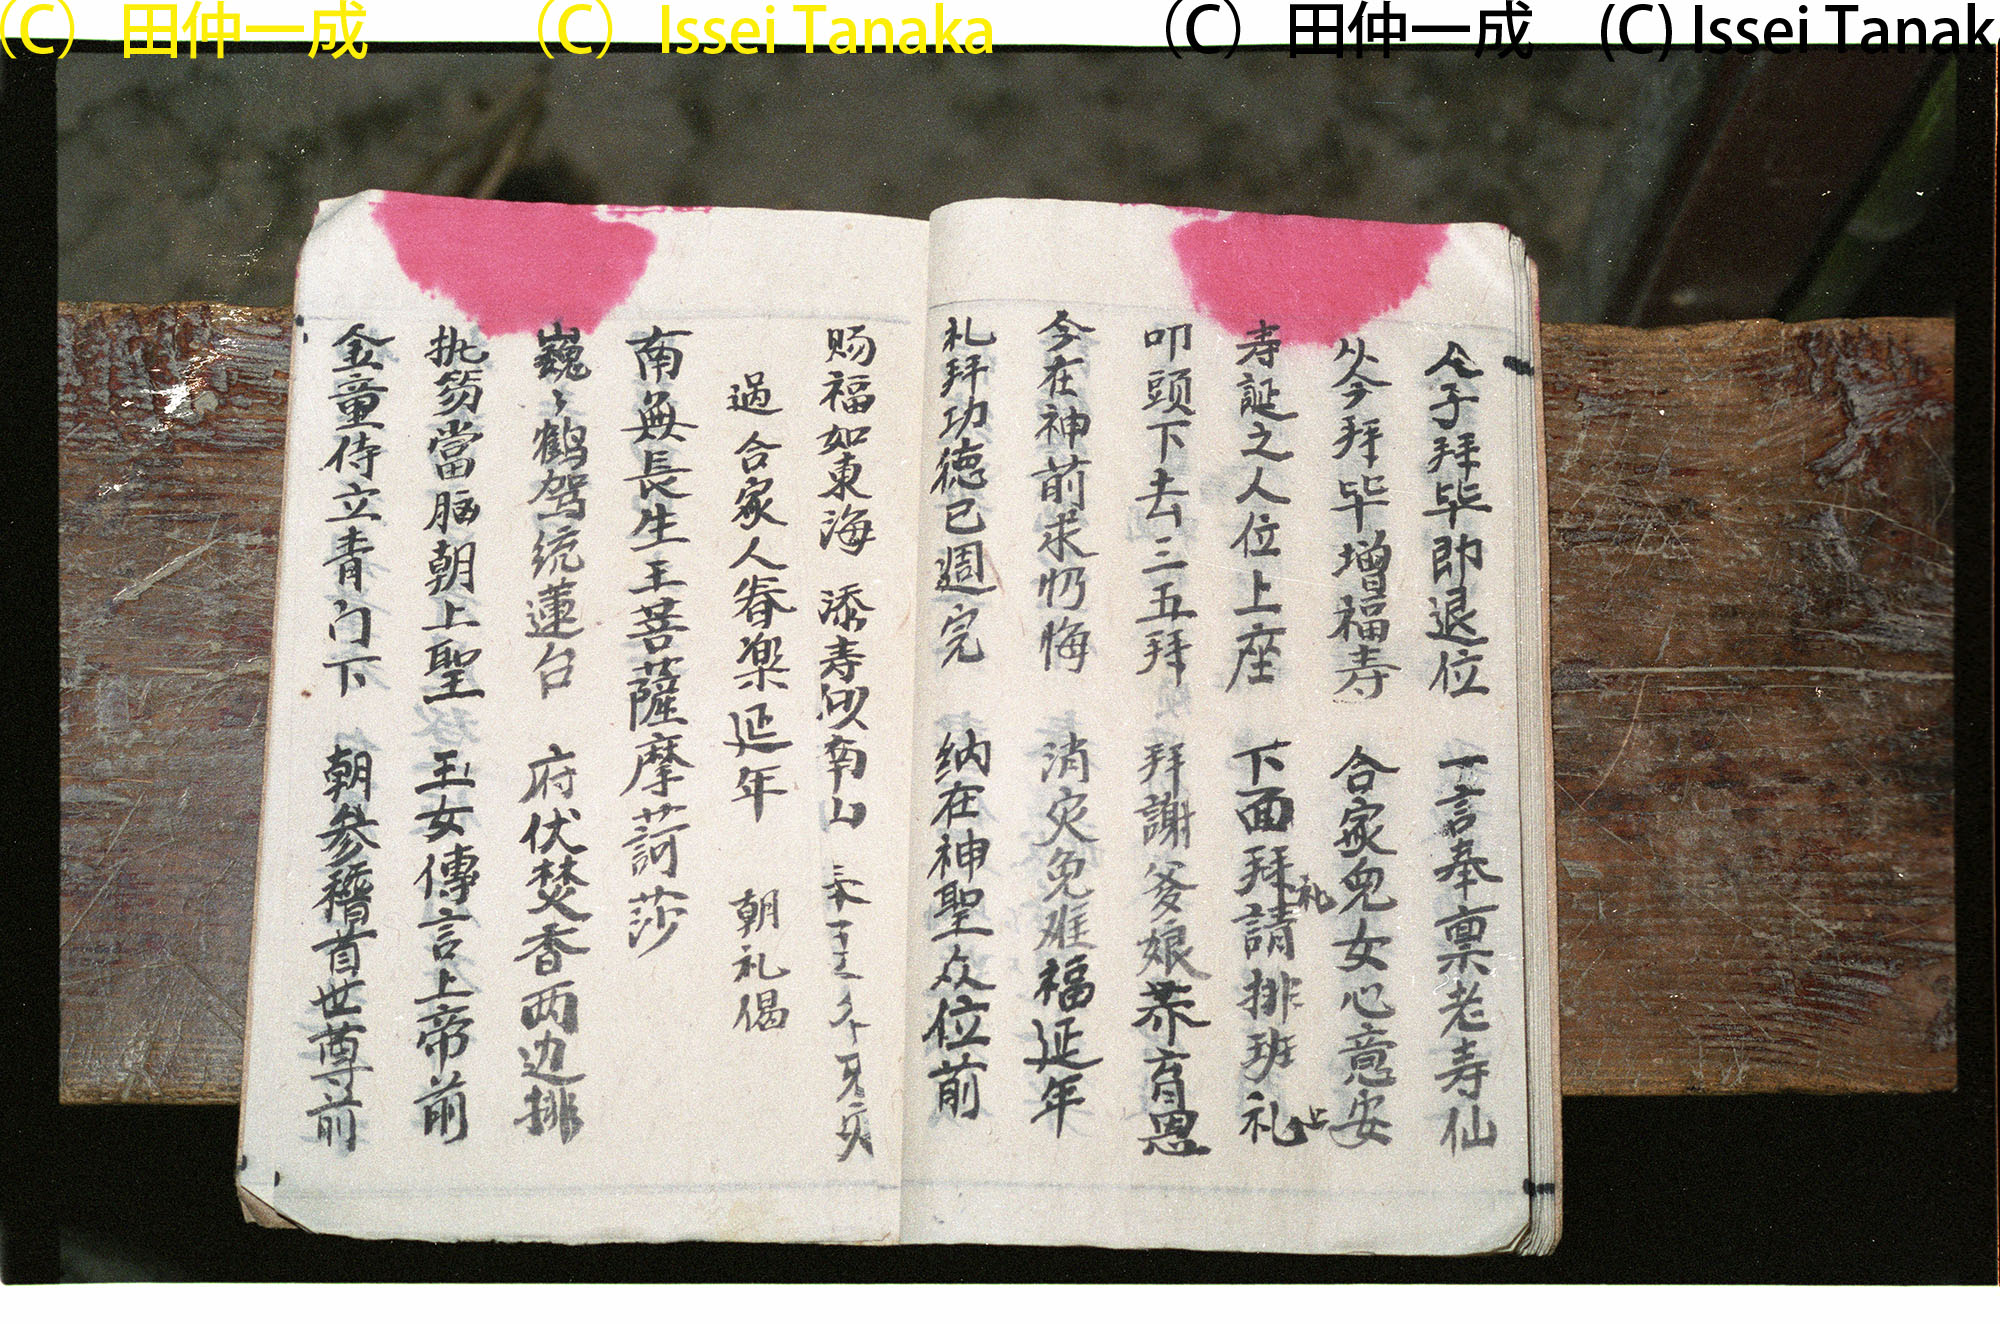 (C) 田仲一成 (C) Issei Tanaka (C) 田仲一成 (C) Issei Tanak
子拜毕即退位 一言奉禀老寿仙
从今拜毕增福寿 合家兒女心意安
寿誕之人位上座 下面拜請排班礼
礼 上
叩頭下去三五拜 拜謝爹娘养育恩
今在神前求忏悔 消灾免难福延年
礼拜功德已週完 纳在神聖众位前
赐福如東海 添寿似南山
過合家人眷楽延年 朝礼偈
南無長生王菩薩摩訶莎
巍々鹤驾统蓮台 府伏焚香两边排
执笏當脑朝上聖 玉女傳言上帝前
金童侍立青门下 朝参稽首世尊前